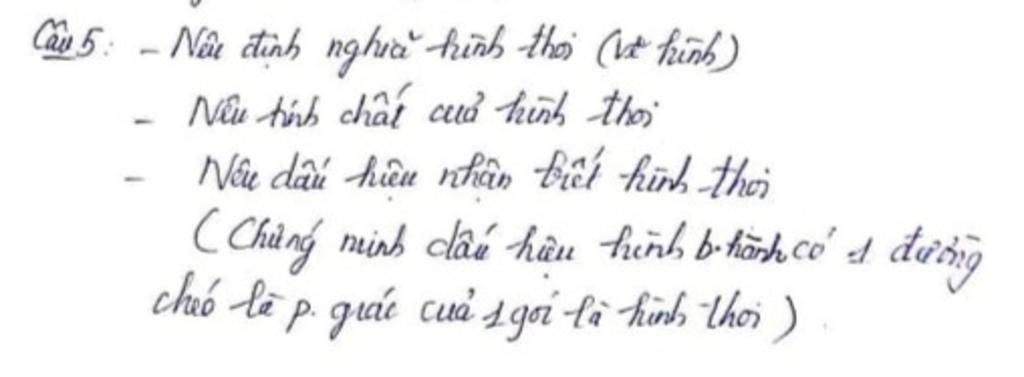 Câu 5: - Nêu định nghĩa hình thoi (vẽ hình)
- Nêu tính chất của hình thoi
- Nêu dấu hiệu nhận biết hình thoi
(Chứng minh dấu hiệu hình b.hành có 1 đường
chéo là p. giác của 1 gói là hình thoi)